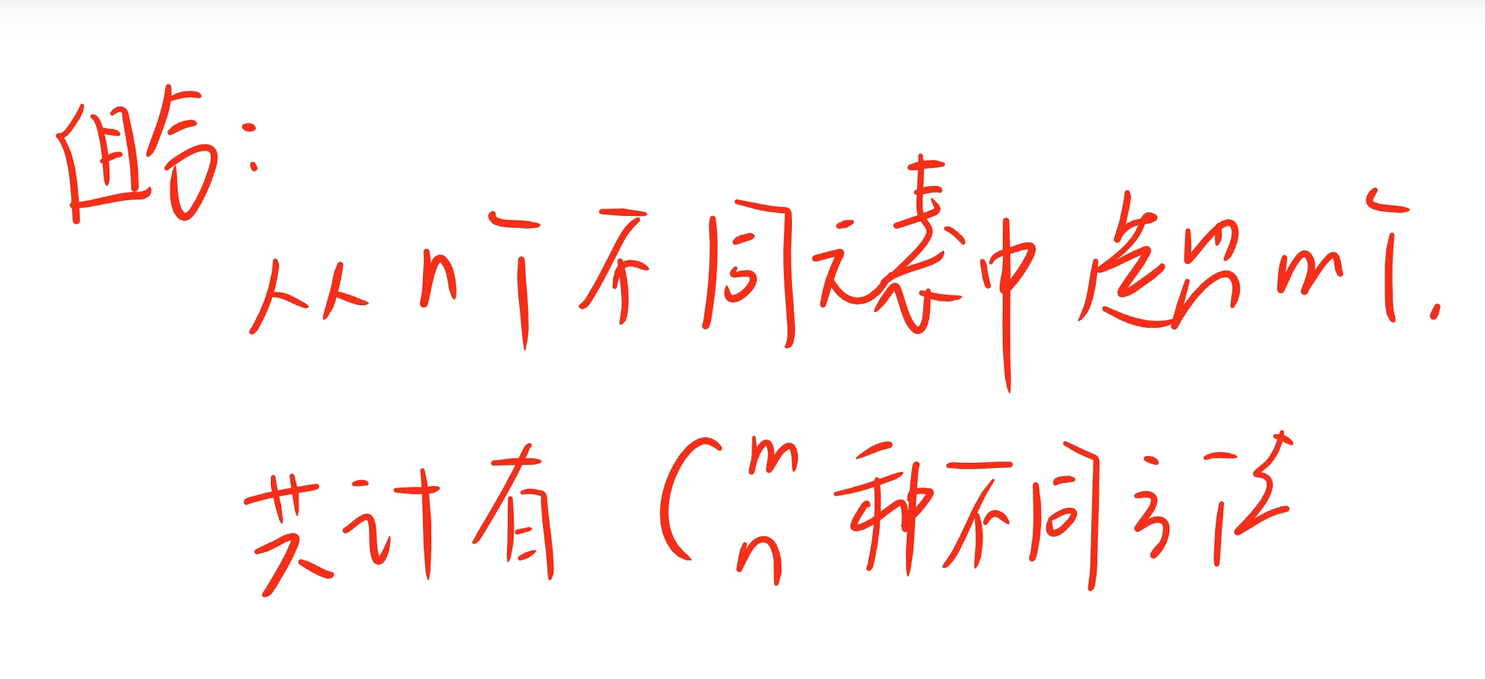 组合:
从n个不同元素中选出m个.
共计有 C_n^m 种不同方法